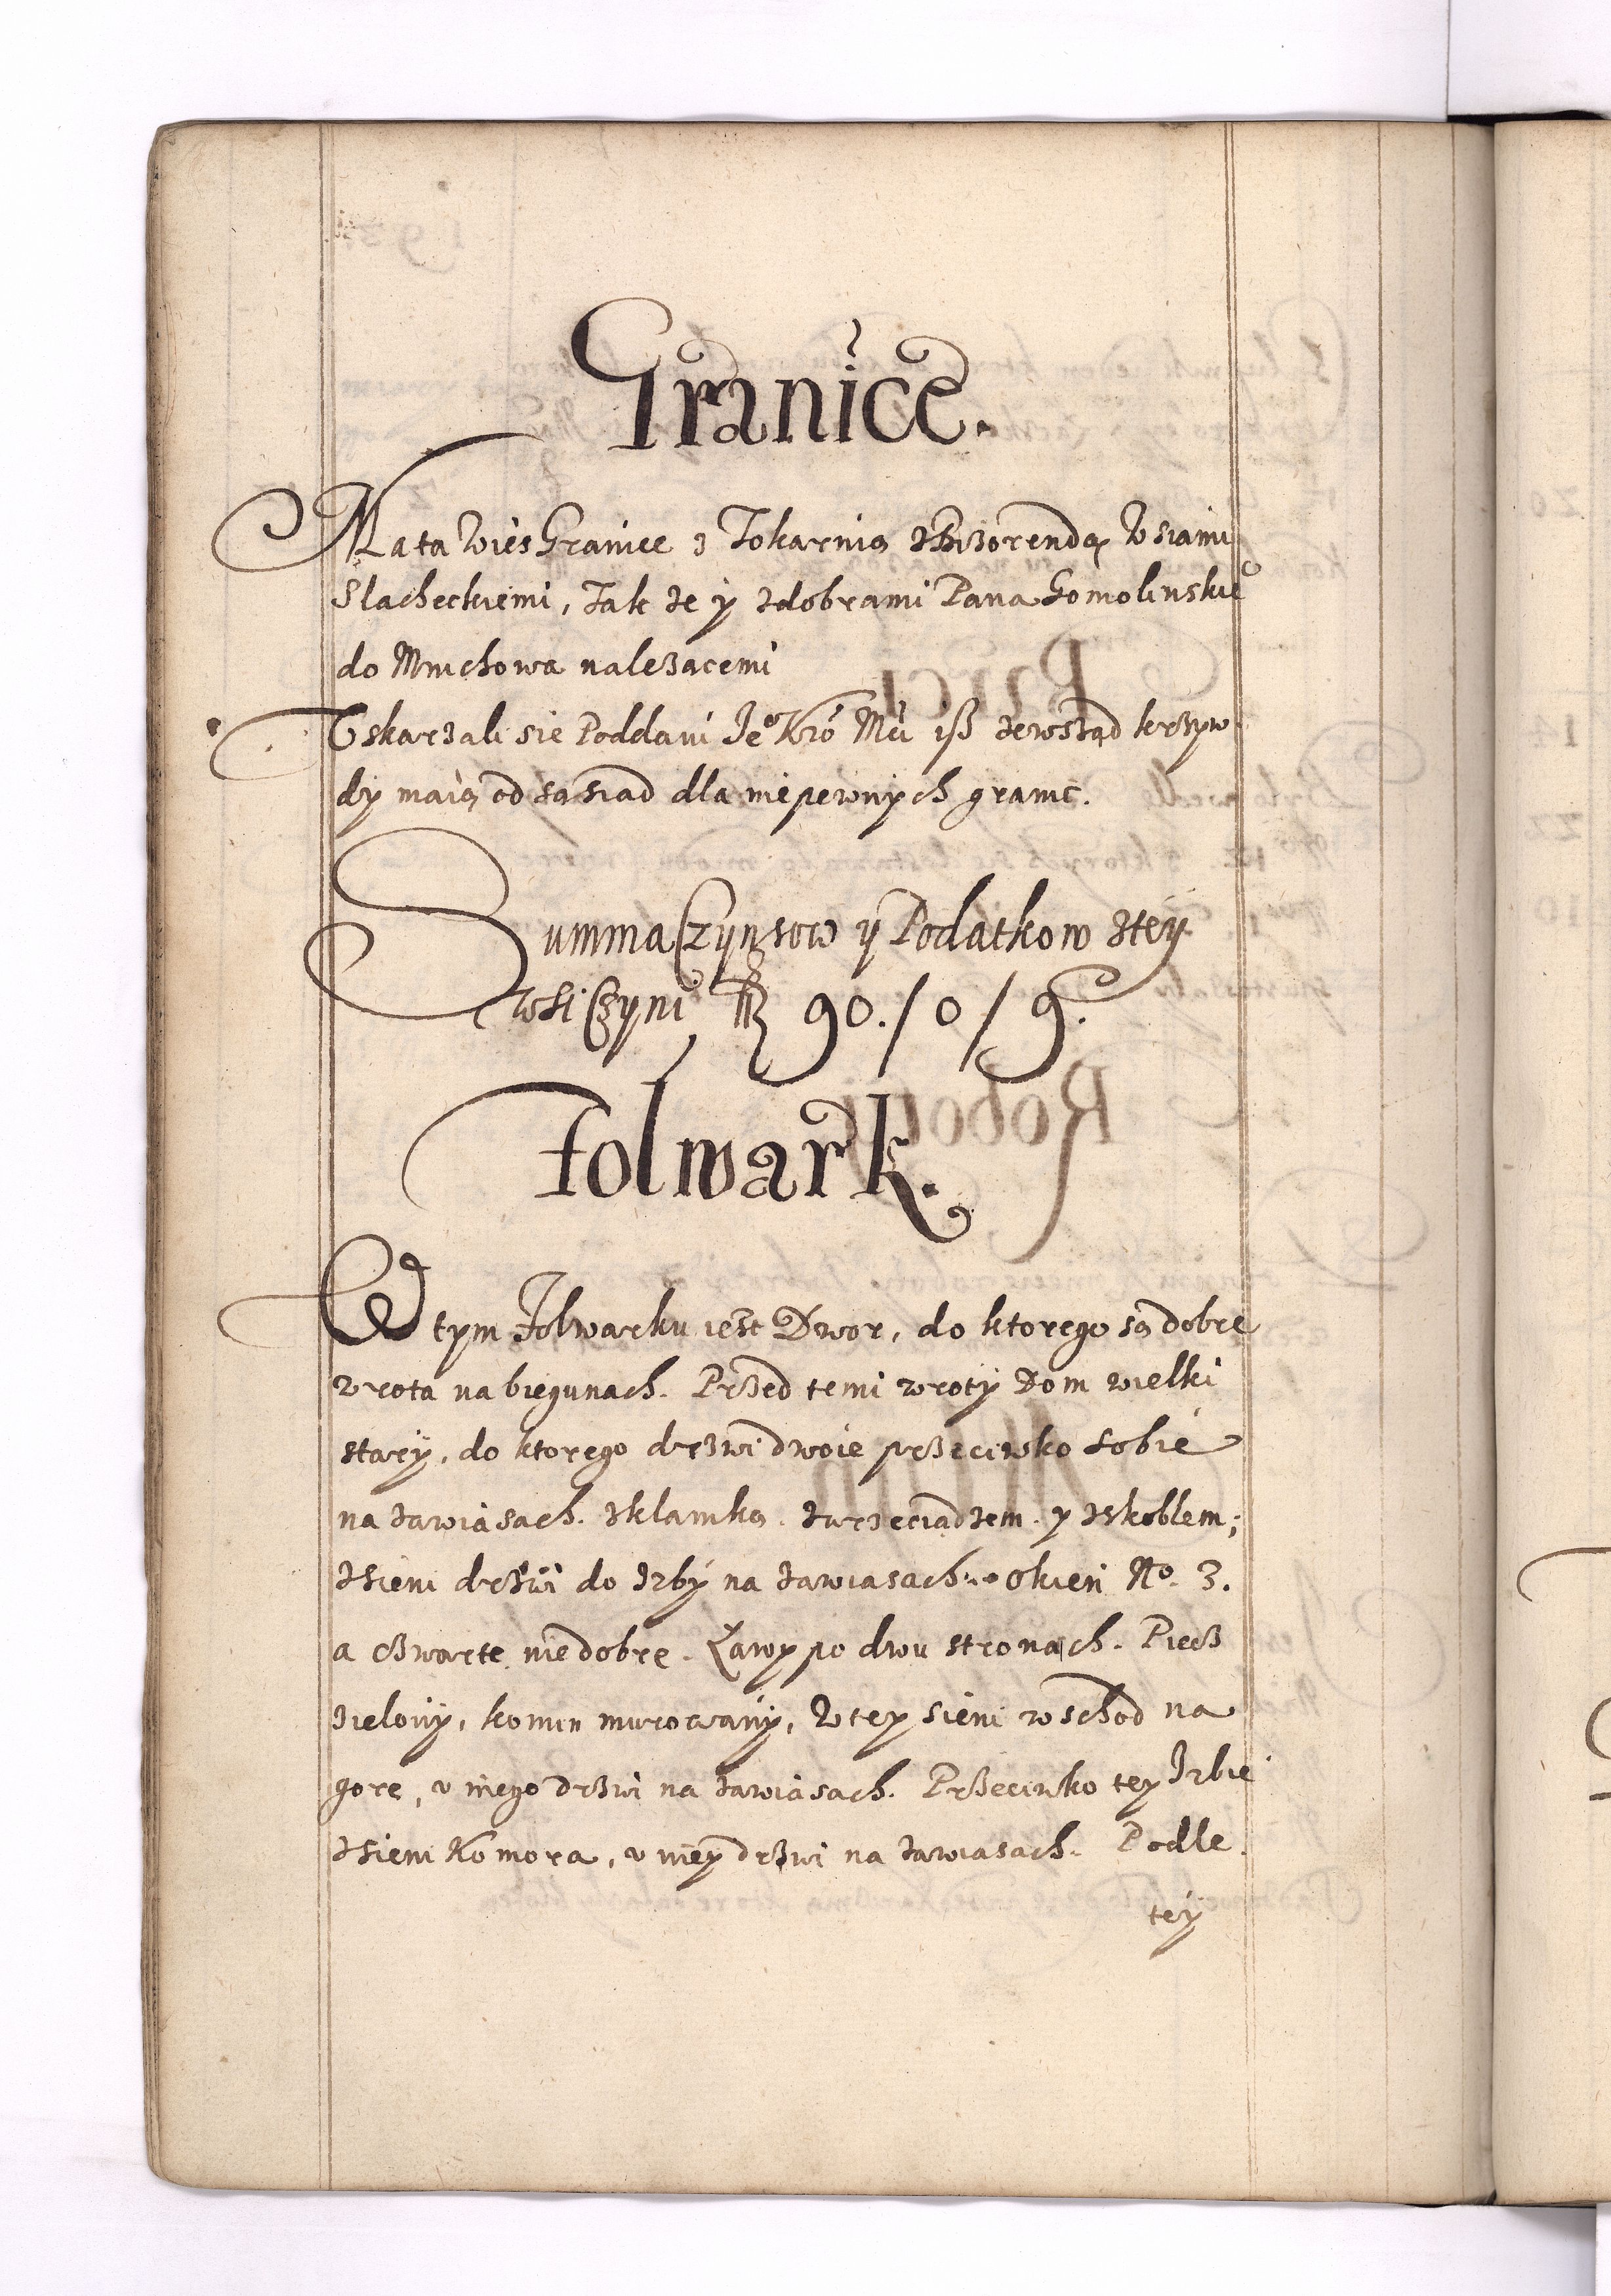 Granice.
Ma ta Wies Granice z Tokarnią z Brzorendą Wsiami
Slacheckiemi, Tak ze y zdobrami Pana Gomolinskie°
do Mnichowa nalezacemi
Uskarzali sie Poddani Je° Kro Mci isz zewsząd krzyw
dy maią od sąsiad dla niepewnych granic.
Summa Czynszow y Podatkow ztey
wsi Czyni 90./0/9.
Folwark.
W tym Folwarku iest Dwor, do ktorego są dobre
wrota na biegunach. Przed temi wroty Dom wielki
stary, do ktorego drzwi dwoie przeciwko sobie
na zawiasach. zklamką. zwrzeciadzem. y zskoblem;
zsieni drzwi do Izby na zawiasach. okien No. 3.
a czwarte niedobre. Ławy po dwu stronach. Piecz
zielony, komin murowany, W tey sieni wschod na
gore, v niego drzwi na zawiasach. Przeciwko tey Izbie
zsieni Komora, v niey drzwi na zawiasach. Podle
tey